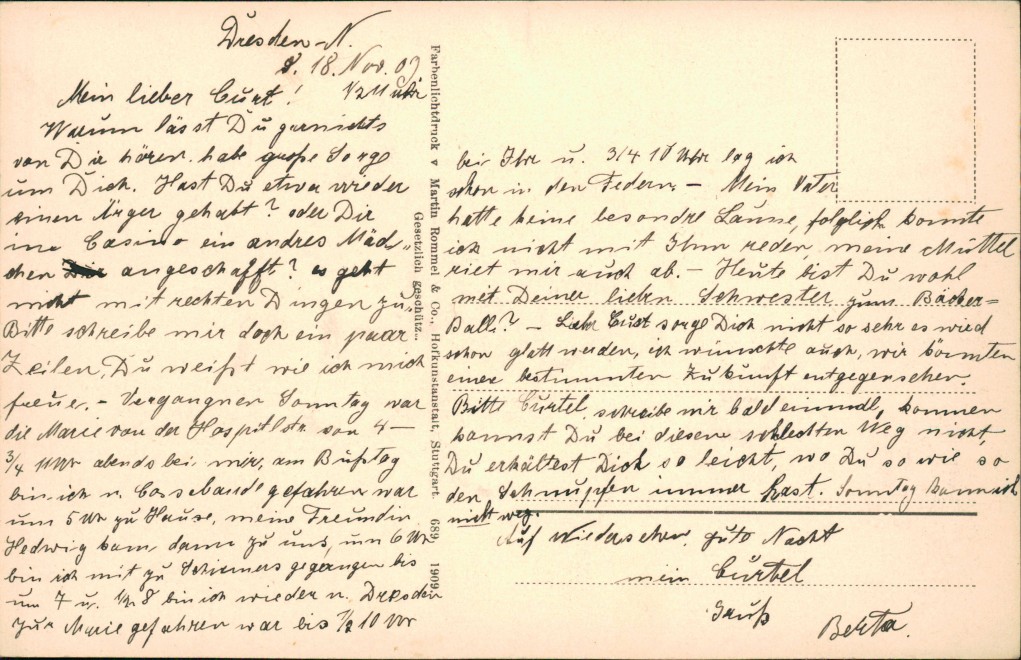 Dresden-N.
d. 18. Nov. 09
Mein lieber Curt! 1/2 11 uhr
Warum lässt Du garnichts
von Dir hören. habe große Sorge
um Dich. Hast Du etwa wieder
einen Ärger gehabt? oder Dir
im Casino ein andres Mäd„
chen angeschafft? es geht
nicht mit rechten Dingen zu.
Bitte schreibe mir doch ein paar
Zeilen, Du weißt wie ich mich
freue. - Vergangnen Sonntag war
die Marie von der Hospitlstr. von 4 -
3/4 11 Uhr abends bei mir, am Bußtag
bin ich n. Cossebaude gefahren war
um 5 Uhr zu Hause, meine Freundin
Hedwig kam dann zu uns, um 6 Uhr
bin ich mit zu gegangen bis
um 7 u. 1/2 8 bin ich wieder n. Dresden
zur Marie gefahren war bis 1/2 10 Uhr
Farbenlichtdruck v Martin Rommel & Co., Hofkunstanstalt, Stuttgart. 689 1909
Gesetzlich geschützt.
bei Ihr u. 3/4 10 Uhr lag ich
schon in den Federn. - Mein Vater
hatte keine besondre Laune, folglich konnte
ich nicht mit Ihm reden, meine Muttel
riet mir auch ab. - Heute bist Du wohl
mit Deiner lieben Schwester zum Bäcker=
Ball? - Curt sorge Dich nicht so sehr es wird
schon glatt werden, ich wünschte auch, wir könnten
einer bestimmten Zukunft entgegensehen.
Bitte Curtel, schreibe mir bald einmal, kommen
kannst Du bei diesem schlechten Weg nicht,
Du erhältest Dich so leicht, wo Du so wie so
den Schnupfen immer hast. Sonntag kann ich
nicht weg.
Auf Wiedersehen, gute Nacht
mein Curtel
Gruß
Berta.